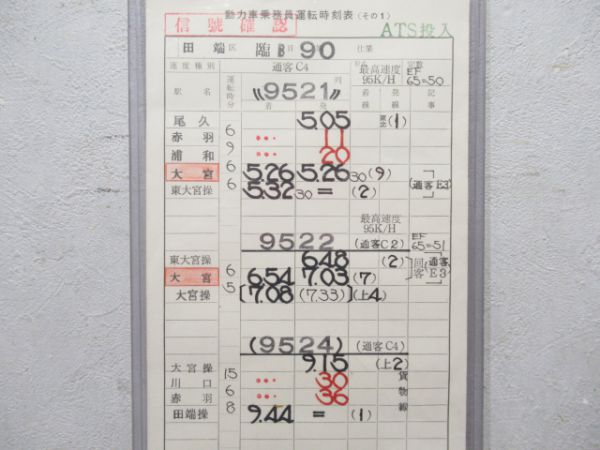 動力車乗務員運転時刻表(その1)
信號確認
ATS投入
田端区 臨B 90 仕業
速度種別 運転時分 通客C4 最高速度 95K/H EF 65=50
駅名 《9521》列 着 発 着線 発線 記事
尾久 5.05 (1)
赤羽 6 … 11
浦和 9 … 20
大宮 6 5.26 5.26 30 (9)
東大宮操 6 5.32 30 = (2) (通客E3)
最高速度 95K/H
9522 (通客C2) EF 65=51
東大宮操 6.48 (2) 回 (通客E3)
大宮 6 6.54 7.03 (7)
大宮操 5 [7.08 (7.33)] (上4)
(9524) (通客C4)
大宮操 9.15 (上2)
川口 15 … 30 貨物線
赤羽 6 … 36
田端操 8 9.44 = (1)